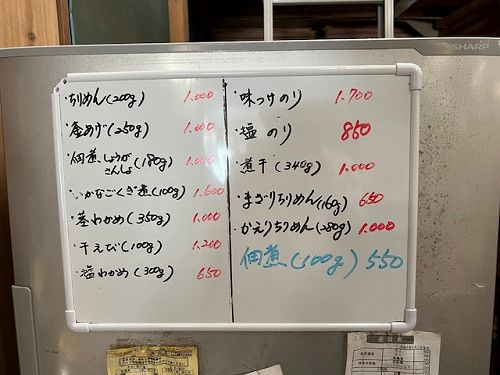 SHARP
・ちりめん(200g) 1.000
・釜あげ(250g) 1.000
・佃煮 しょうが
さんしょ (180g) 1.000
・いかなごくぎ煮(100g) 1.600
・茎わかめ(350g) 1.000
・干えび(100g) 1.200
・塩わかめ(300g) 650
・味つけのり 1.700
・塩のり 850
・煮干(340g) 1.000
・まざりちりめん(160g) 650
・かえりちりめん(280g) 1.000
佃煮(100g) 550